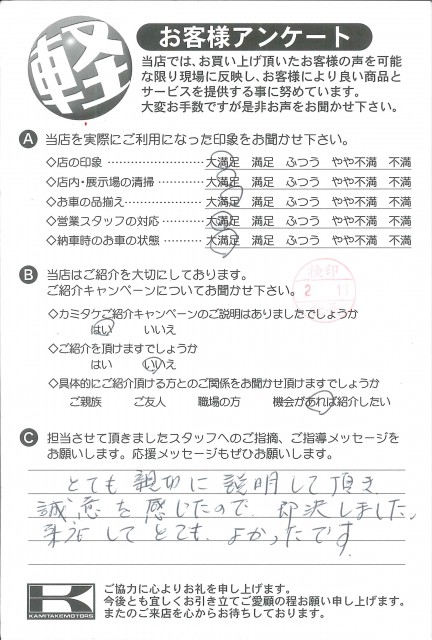 軽
お客様アンケート
当店では、お買い上げ頂いたお客様の声を可能
な限り現場に反映し、お客様により良い商品と
サービスを提供する事に努めています。
大変お手数ですが是非お声をお聞かせ下さい。
A 当店を実際にご利用になった印象をお聞かせ下さい。
◇店の印象 ………………… 大満足 満足 ふつう やや不満 不満
◇店内・展示場の清掃 ………… 大満足 満足 ふつう やや不満 不満
◇お車の品揃え ……………… 大満足 満足 ふつう やや不満 不満
◇営業スタッフの対応 ………… 大満足 満足 ふつう やや不満 不満
◇納車時のお車の状態 ………… 大満足 満足 ふつう やや不満 不満
B 当店はご紹介を大切にしております。
ご紹介キャンペーンについてお聞かせ下さい。
2 11
◇カミタケご紹介キャンペーンのご説明はありましたでしょうか
はい いいえ
◇ご紹介を頂けますでしょうか
はい いいえ
◇具体的にご紹介頂ける方とのご関係をお聞かせ頂けますでしょうか
ご親族 ご友人 職場の方 機会があれば紹介したい
C 担当させて頂きましたスタッフへのご指摘、ご指導メッセージを
お願いします。応援メッセージもぜひお願いします。
とても親切に説明して頂き
誠意を感じたので、即決しました。
来店してとても、よかったです
K
KAMITAKEMOTORS
ご協力に心よりお礼を申し上げます。
今後とも宜しくお引き立てご愛顧の程お願い申し上げます。
またのご来店を心からお待ちしております。